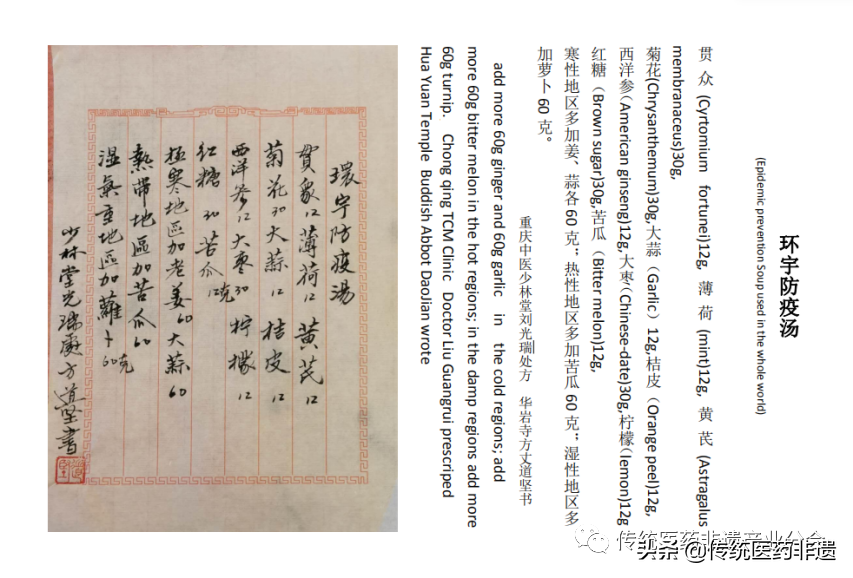 環宇防疫湯
貫衆12薄荷12黄芪12
菊花30大蒜12桔皮12
西洋參12大棗30柠檬12
红糖30苦瓜12克
極寒地區加老姜60大蒜60
熱帶地區加苦瓜60
濕氣重地區加蘿卜60克
少林堂光瑞處方道坚書
环宇防疫汤
(Epidemic prevention Soup used in the whole world)
贯众 (Cyrtomium fortunei)12g, 薄荷 (mint)12g, 黄芪 (Astragalus
membranaceus)30g,
菊花(Chrysanthemum)30g,大蒜（Garlic）12g,桔皮（Orange peel)12g,
西洋参(American ginseng)12g,大枣(Chinese-date)30g,柠檬(lemon)12g
红糖（Brown sugar)30g,苦瓜（Bitter melon)12g,
寒性地区多加姜、蒜各60克；热性地区多加苦瓜60克；湿性地区多
加萝卜60克。
重庆中医少林堂刘光瑞处方 华岩寺方丈道坚书
add more 60g ginger and 60g garlic in the cold regions; add
more 60g bitter melon in the hot regions; in the damp regions add more
60g turnip. Chong qing TCM Clinic Doctor Liu Guangrui prescriped
Hua Yuan Temple Buddish Abbot DaoJian wrote
传统医药非遗产业分会
头条 @传统医药非遗